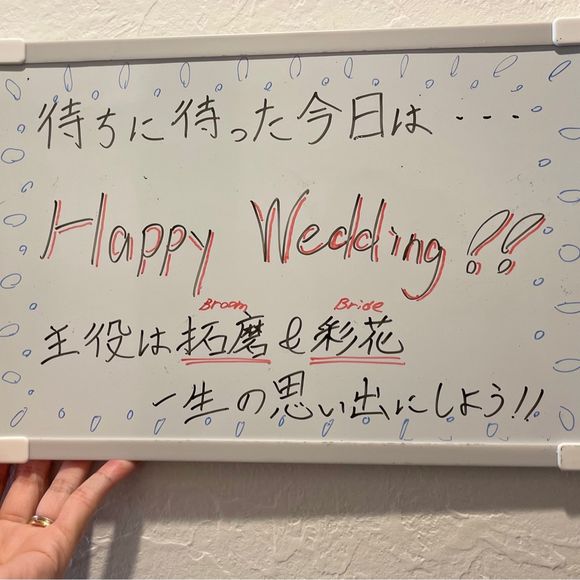 待ちに待った今日は・・・
Happy Wedding!!
Broom Bride
主役は拓磨&彩花
一生の思い出にしよう!!